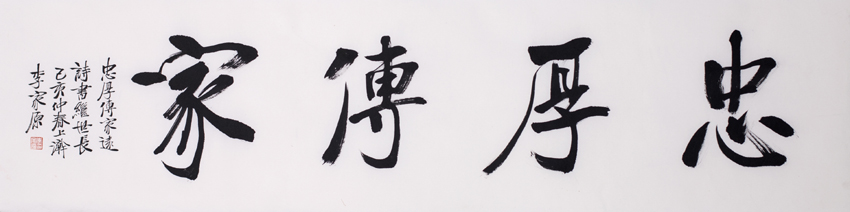 忠厚傳家
忠厚傳家遠
詩書繼世長
乙亥仲春上澣
李家原